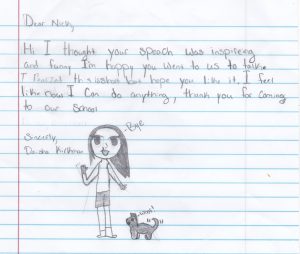 Dear Nick,
Hi I thought your speach was inspireing
and funny I'm happy you went to us to talk.
I this is short but hope you like it. I feel
like now I can do anything, thank you for coming
to our school
Sincerly,
-Bye
woof!